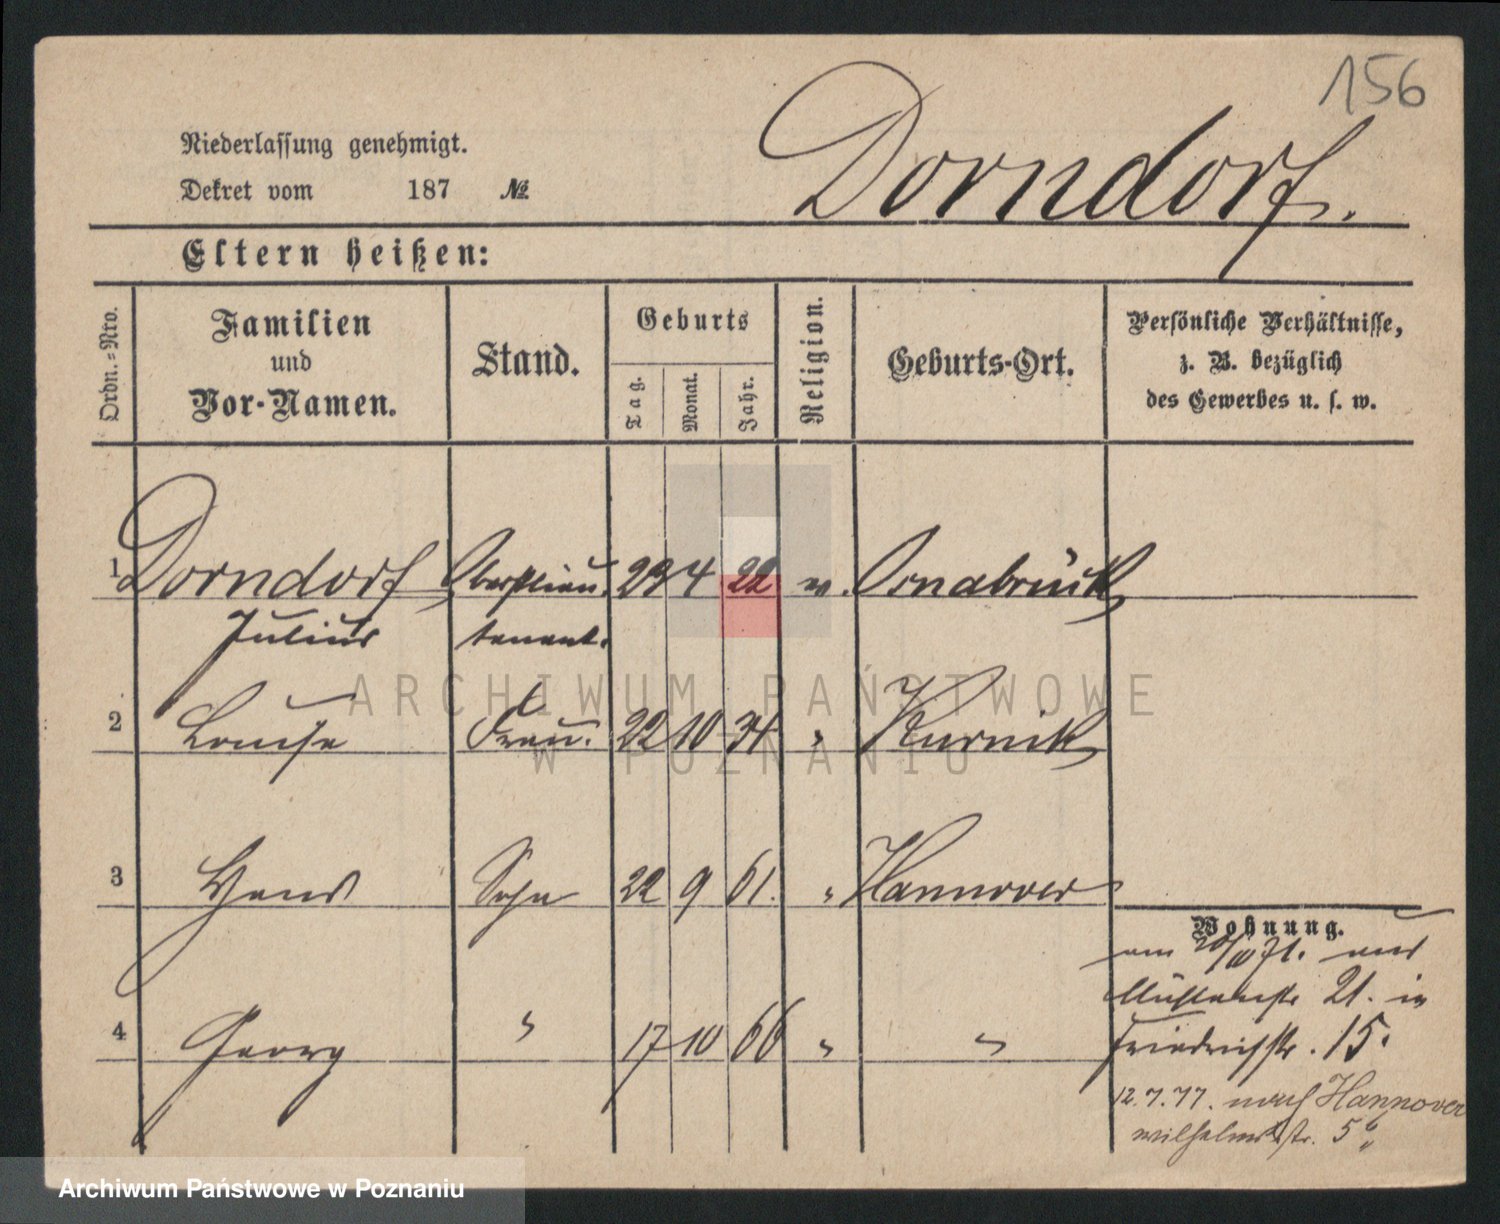 156
Niederlassung genehmigt.
Dekret vom 187 №
Dorndorf.
Eltern heißen:
Ordn.=Nro.
Familien
und
Vor-Namen.
Stand.
Geburts
Tag.
Monat.
Jahr.
Religion.
Geburts-Ort.
Persönliche Verhältnisse,
z. B. bezüglich
des Gewerbes u. s. w.
1 Dorndorf Oberstlieu 4 22 Osnabrück
Julius tenant.
2 Louise Frau. 22 10 34 " Kurnik
3 Hans Sohn 22 9 61. " Hannover
Wohnung.
am 71. aus
21. in
4 Georg " 17 10 66 " "
Friedrichstr. 15.
12.7.77. nach Hannover
Wilhelmstr. 5
ARCHIWUM PAŃSTWOWE
W POZNANIU
Archiwum Państwowe w Poznaniu